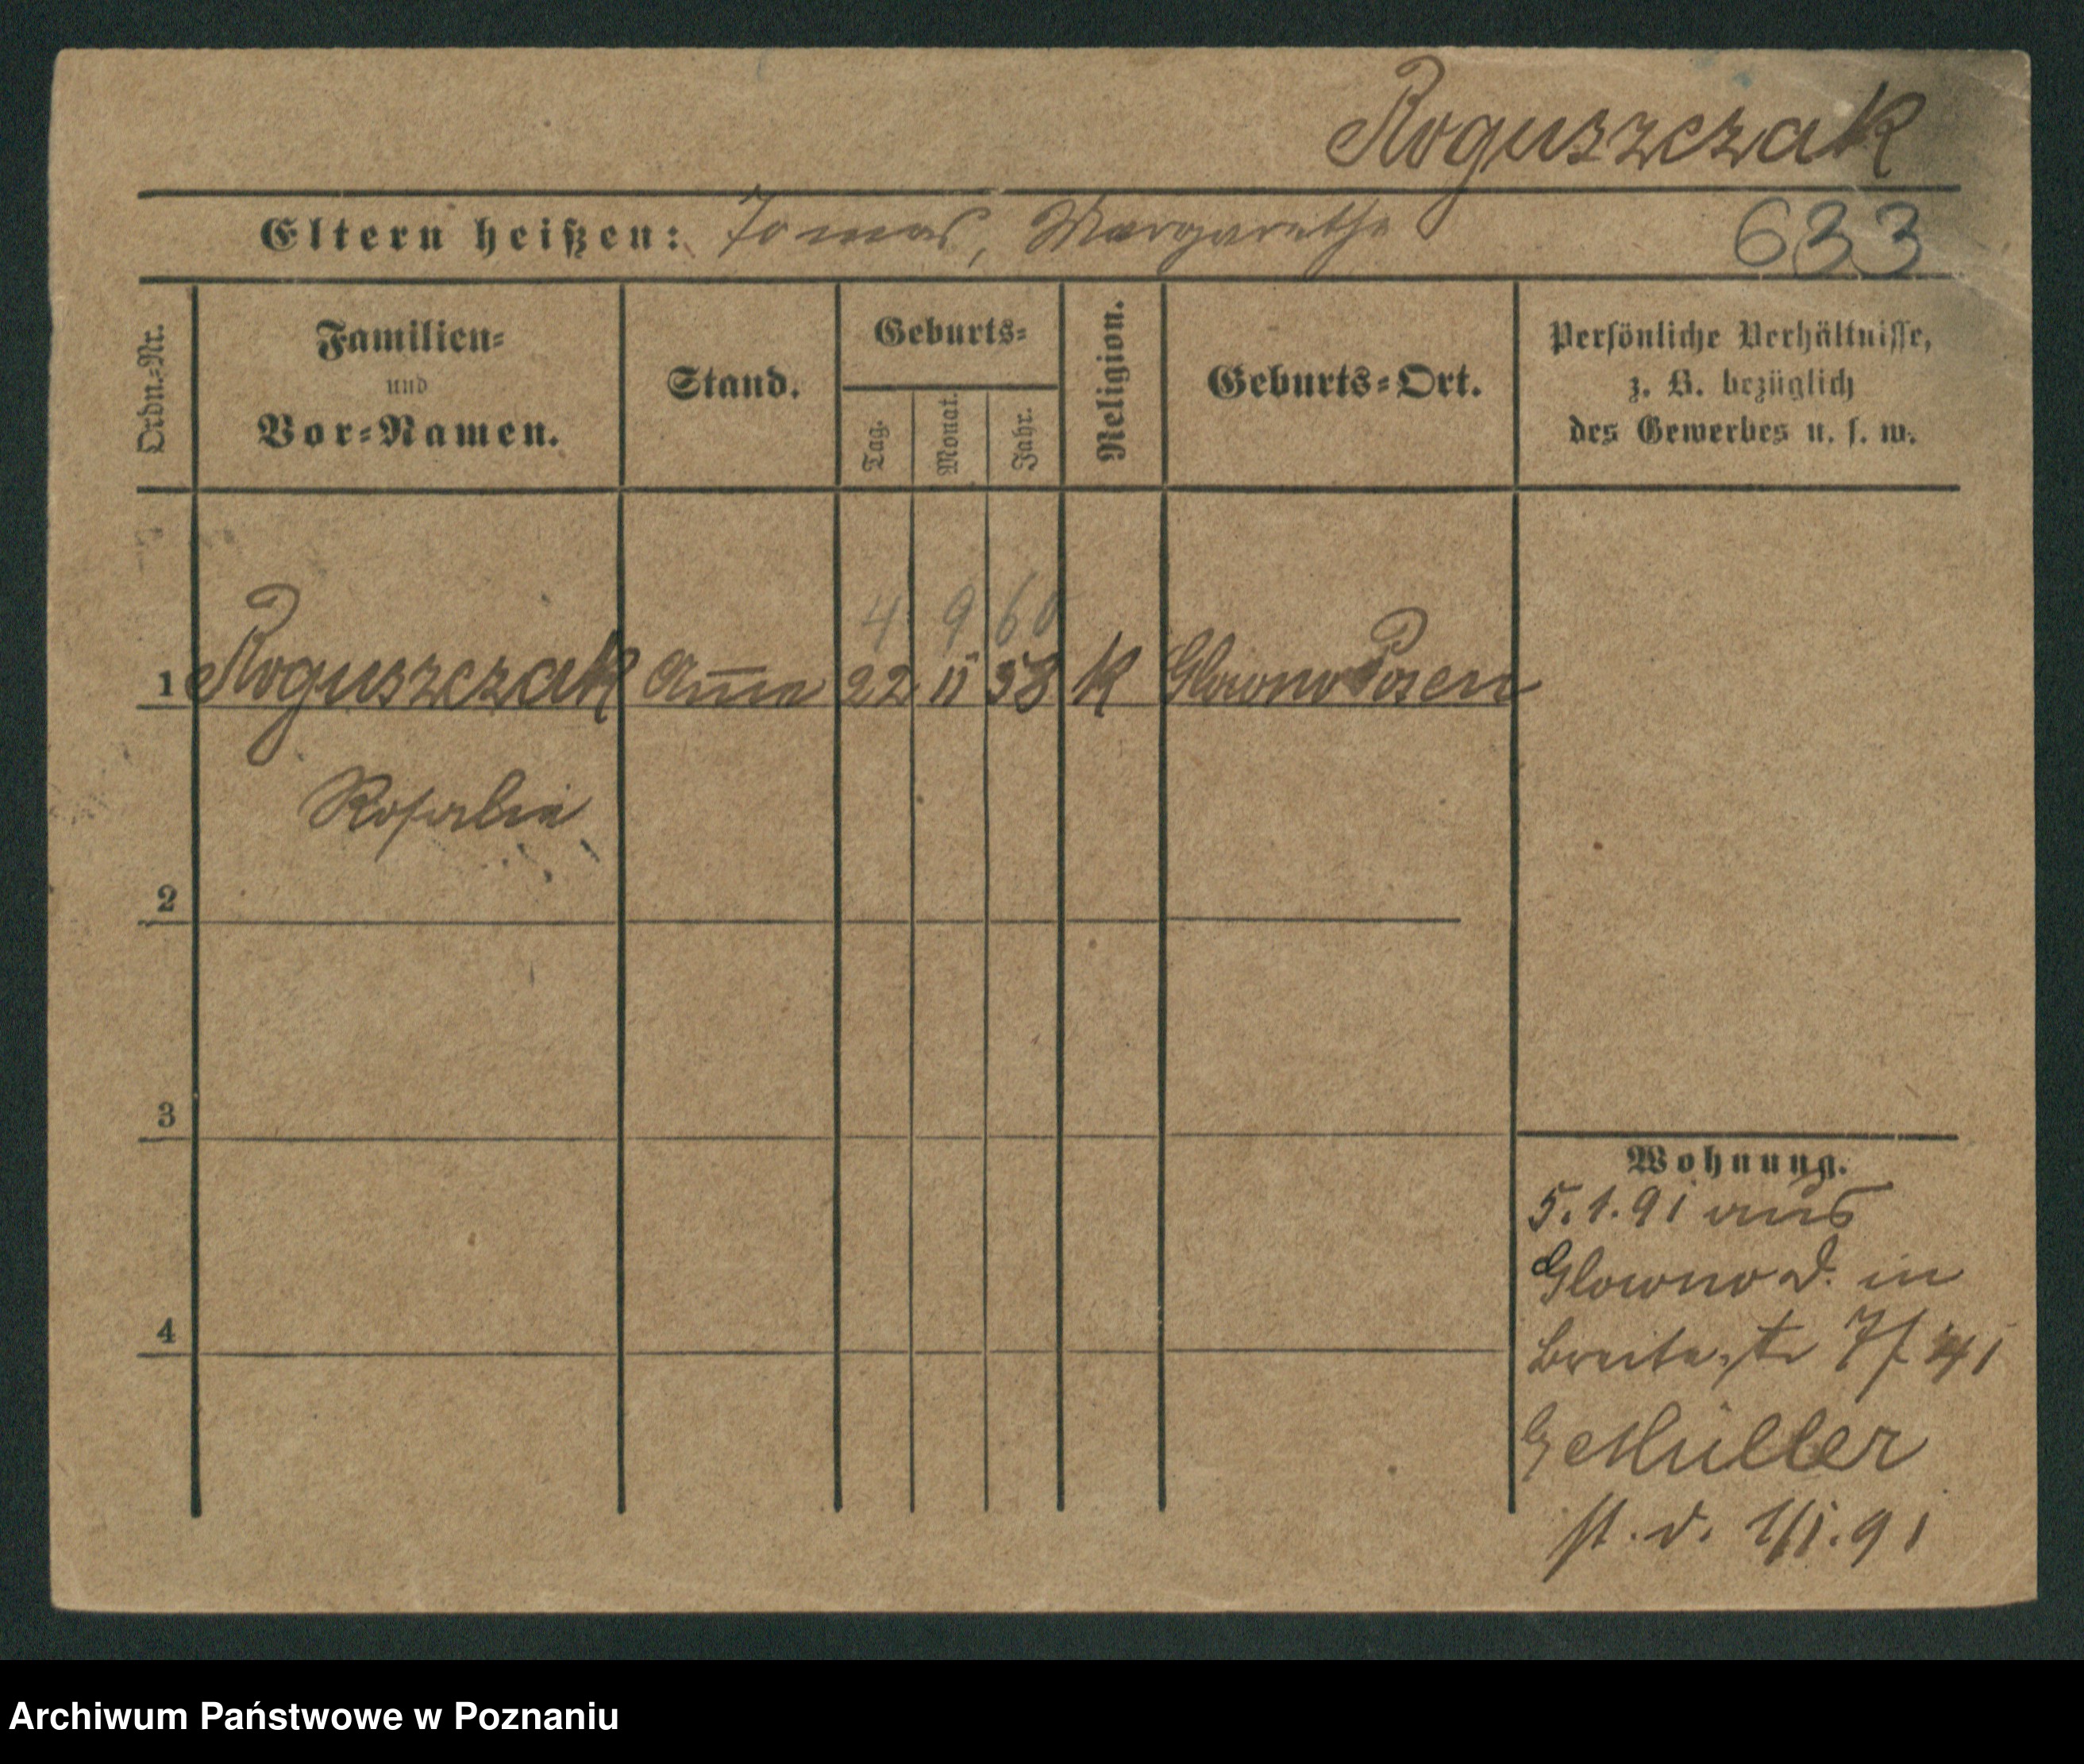 Roguszczak
Eltern heißen: Tomas, Margarethe 633
Ordn.-Nr.
Familien-
und
Vor-Namen.
Stand.
Geburts-
Tag.
Monat.
Jahr.
Religion.
Geburts-Ort.
Persönliche Verhältnisse,
z. B. bezüglich
des Gewerbes u. s. w.
4 9 60
1 Roguszczak Amme 22 11 58 K Glowno Posen
Rosalia
2
3
4
Wohnung.
5.1.91 aus
Glowno d. in
Breitestr 7
Müller
st. d. 1/1.91
Archiwum Państwowe w Poznaniu